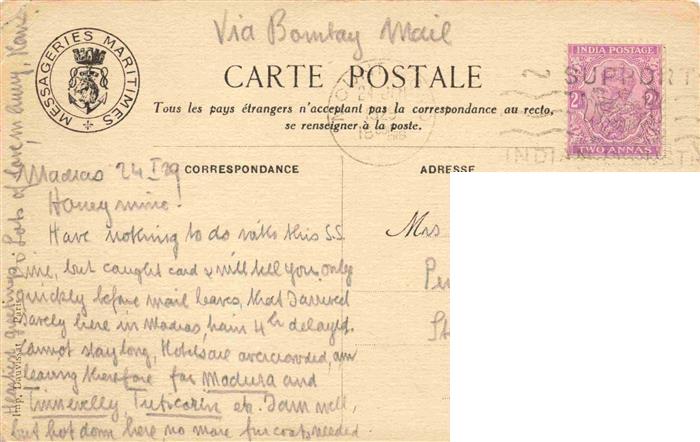 Via Bombay Mail
MESSAGERIES MARITIMES
CARTE POSTALE
Tous les pays étrangers n'acceptent pas la correspondance au recto,
se renseigner à la poste.
INDIA POSTAGE
2A 2A
TWO ANNAS
SUPPORT
INDIAN
CORRESPONDANCE
ADRESSE
Madras 24 I 29
Honey mine!
Have nothing to do with this S.S.
line, but caught card & will tell you only
quickly before mail leaves, that I arrived
safely here in Madras, train 4 hr delayed.
Cannot stay long, Hotels are overcrowded, am
leaving therefore for Madura and
Tinnevelly, Tuticorin etc. I am well,
but hot down here no more fur coats needed
Mrs
Heartiest greetings, Lots of love, m'aimy, Hans
Imp. Dauvissat Paris